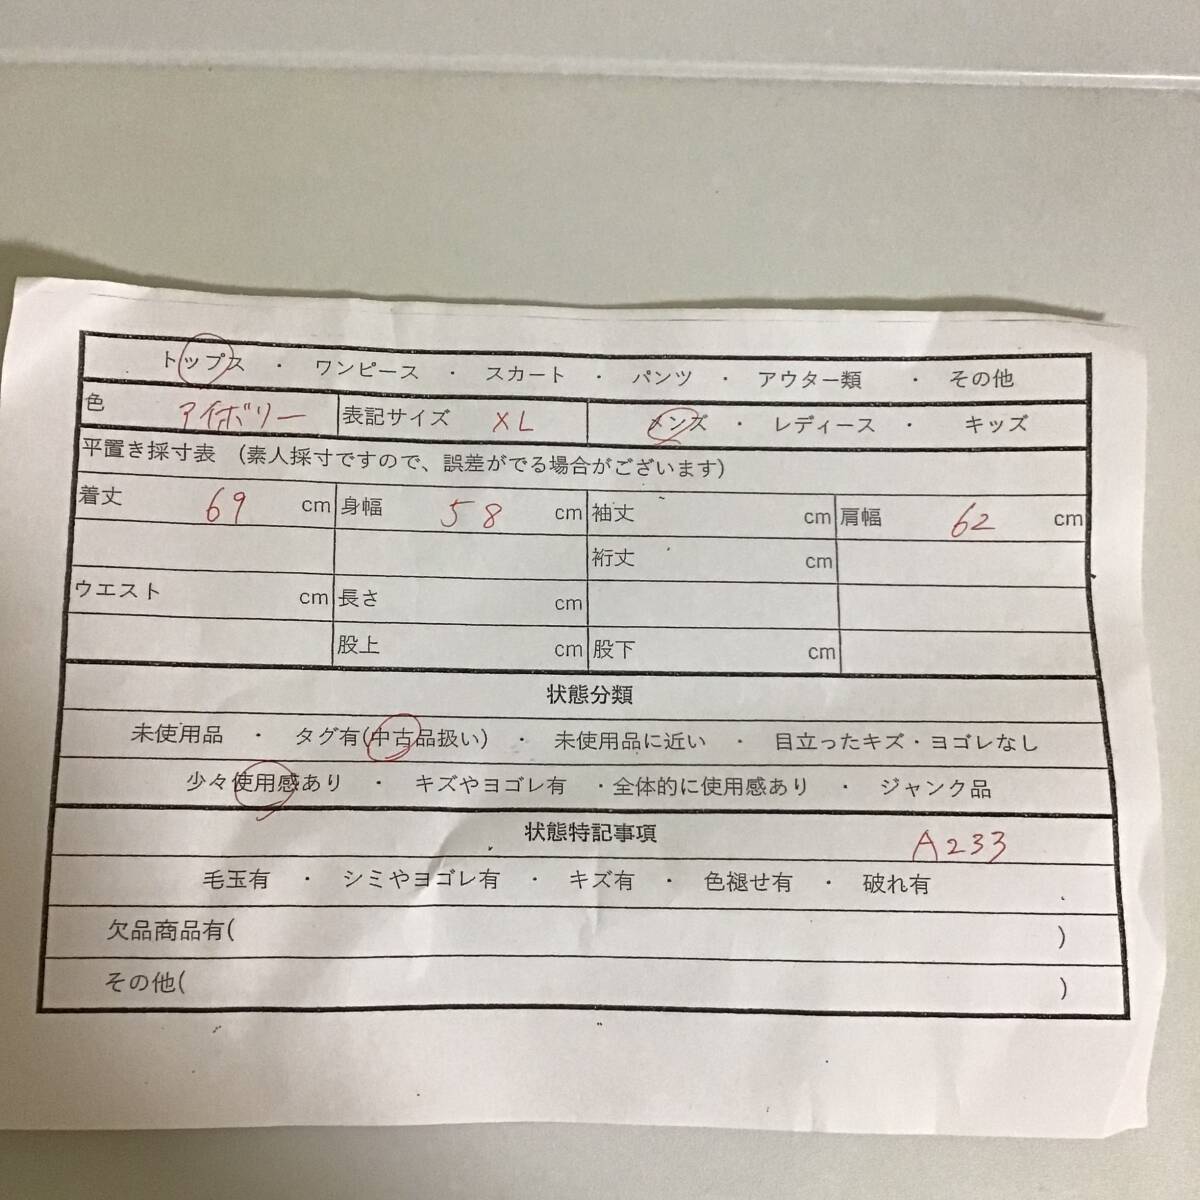 トップス ・ ワンピース ・ スカート ・ パンツ ・ アウター類 ・ その他
色 アイボリー 表記サイズ XL メンズ ・ レディース ・ キッズ
平置き採寸表 (素人採寸ですので、誤差がでる場合がございます)
着丈 69 cm 身幅 58 cm 袖丈 cm 肩幅 62 cm
裄丈 cm
ウエスト cm 長さ cm
股上 cm 股下 cm
状態分類
未使用品 ・ タグ有(中古品扱い) ・ 未使用品に近い ・ 目立ったキズ・ヨゴレなし
少々使用感あり ・ キズやヨゴレ有 ・全体的に使用感あり ・ ジャンク品
状態特記事項 A233
毛玉有 ・ シミやヨゴレ有 ・ キズ有 ・ 色褪せ有 ・ 破れ有
欠品商品有( )
その他( )